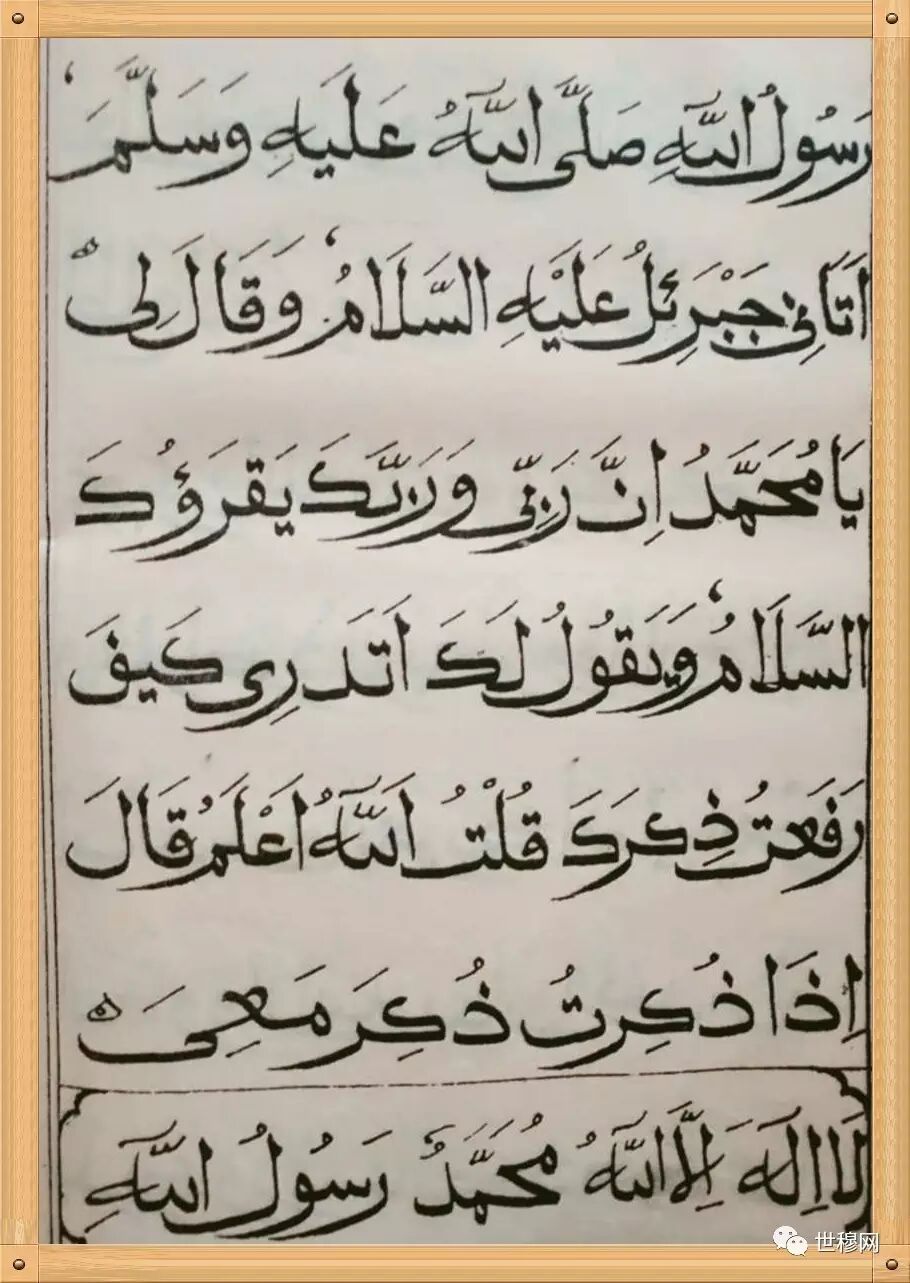 رَسُولُ اللّٰهِ صَلَّى اللّٰهُ عَلَيَهِ وَسَلَّمَ
اَتَانِى جَبْرَئِلُ عَلَيْهِ السَّلَامُ وَقَالَ لِى
يَا مُحَمَّدُ اِنَّ رَبِّى وَرَبَّكَ يَقرَؤُكَ
السَّلَامُ وَيَقُولُ لَكَ اَتَدرِى كَيفَ
رَفَعتُ ذِكرَكَ قُلْتُ اَللّٰهُ اَعْلَمُ قَالَ
اِذَا ذُكِرتُ ذُكِرَ مَعِىَ
لَا اِلٰهَ اِلَّا اللّٰهُ مُحَمَّدٌ رَسُولُ اللّٰهِ
世穆网